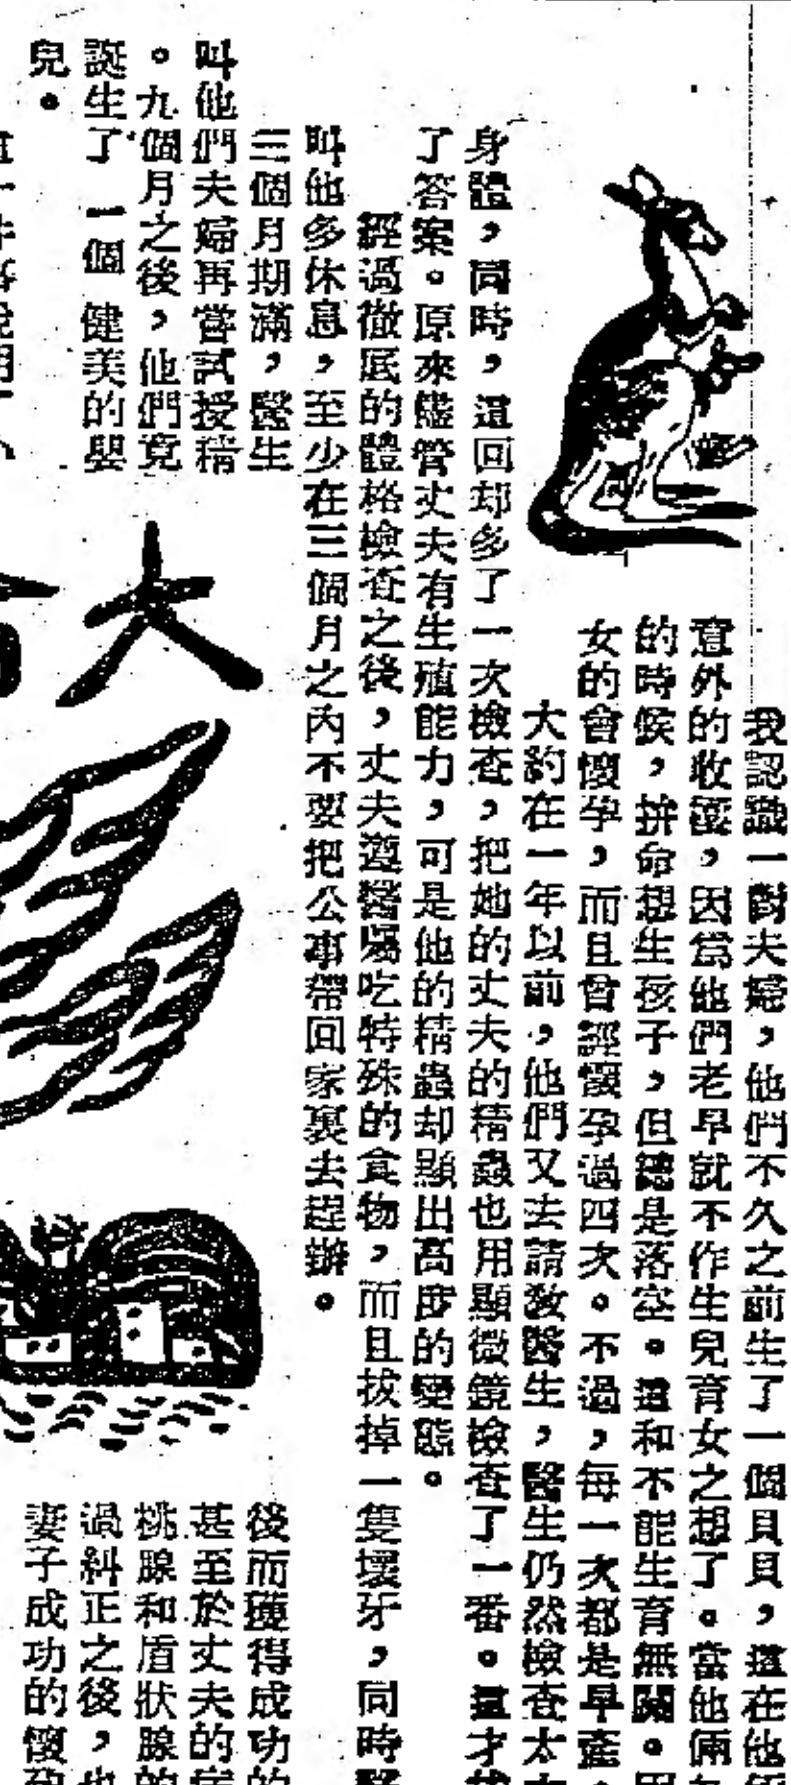 我認識一對夫婦，他們不久之前生了一個貝貝，這在他
意外的收穫，因為他們老早就不作生兒育女之想了。當他倆
的時候，拚命想生孩子，但總是落空。這和不能生育無關。
女的會懷孕，而且曾經懷孕過四次。不過，每一次都是早產，
大約在一年以前，他們又去請敎醫生，醫生仍然檢查太太
身體，同時，這回却多了一次檢查，把她的丈夫的精蟲也用顯微鏡檢查了一番。這才
了答案。原來儘管丈夫有生殖能力，可是他的精蟲却顯出高度的變態。
經過徹底的體格檢查之後，丈夫遵醫囑吃特殊的食物，而且拔掉一隻壞牙，同時醫
叫他多休息，至少在三個月之內不要把公事帶回家裏去趕辦。
三個月期滿，醫生
叫他們夫婦再嘗試授精
。九個月之後，他們竟
誕生了一個健美的嬰
兒。
大
後而獲得成功的
甚至於丈夫的
桃腺和盾狀腺的
過糾正之後，也
妻子成功的懷孕